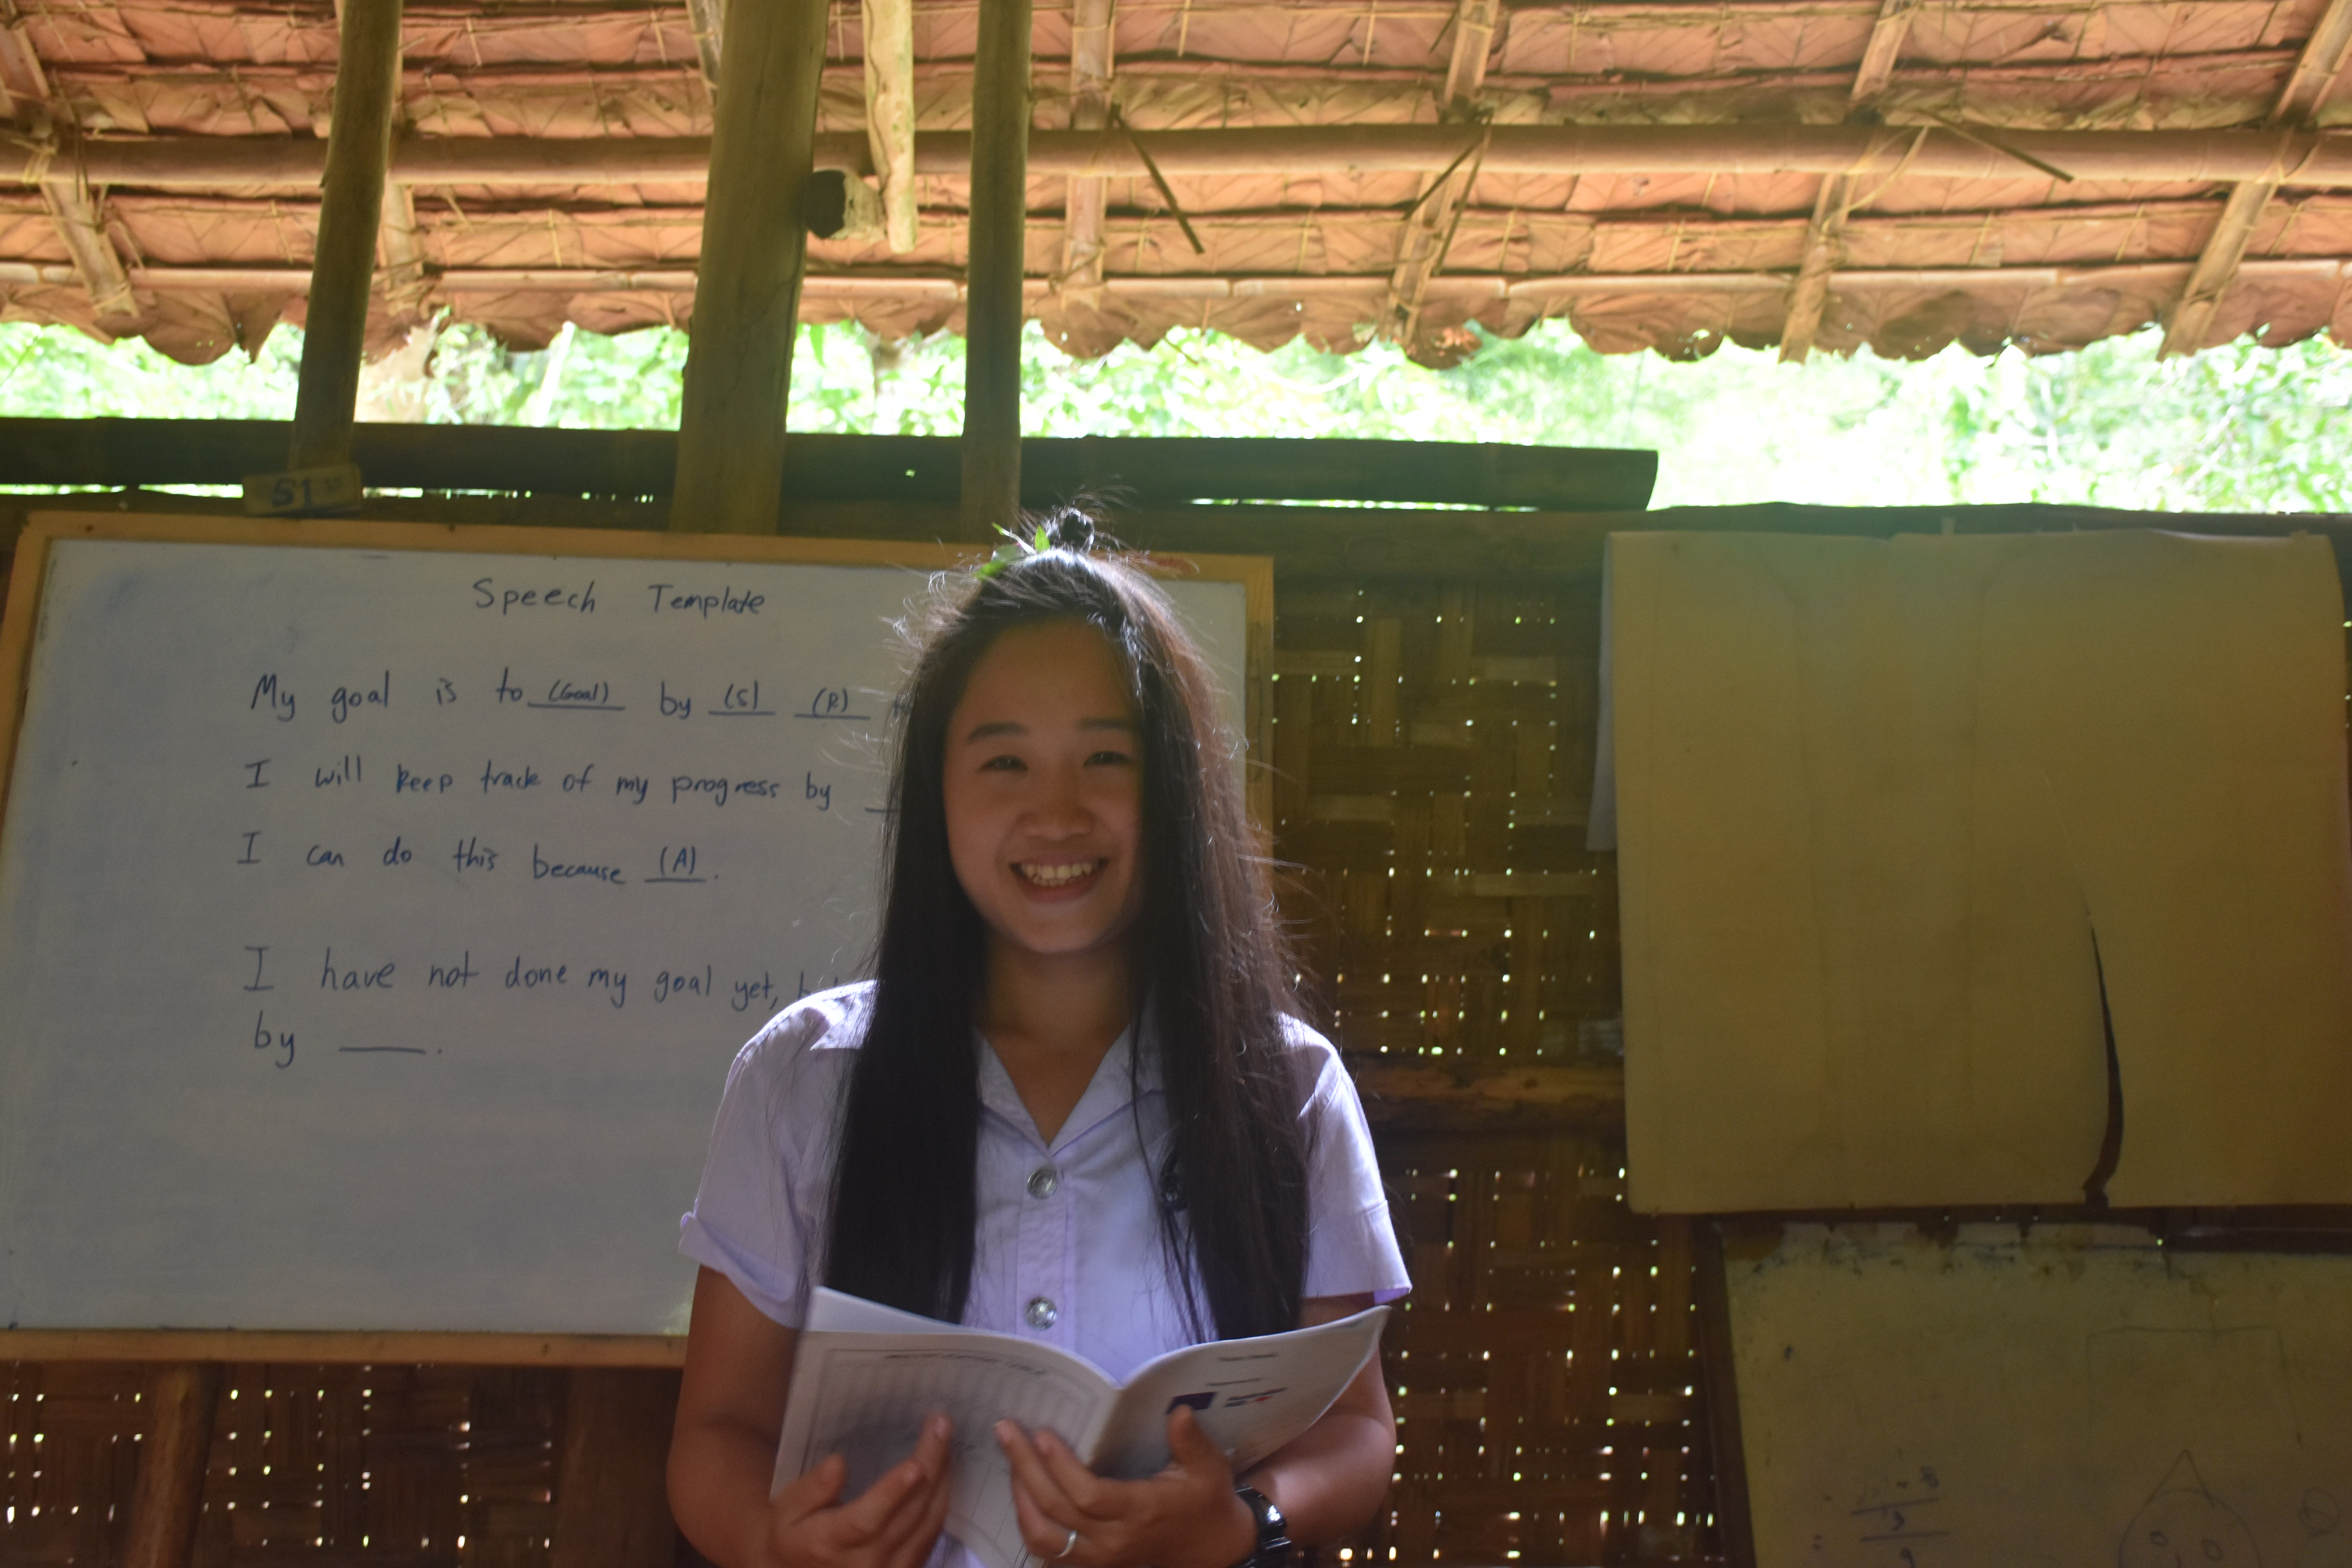 S1
Speech Template
My goal is to (Goal) by (S) (R)
I will keep track of my progress by
I can do this because (A).
I have not done my goal yet,
by ____.